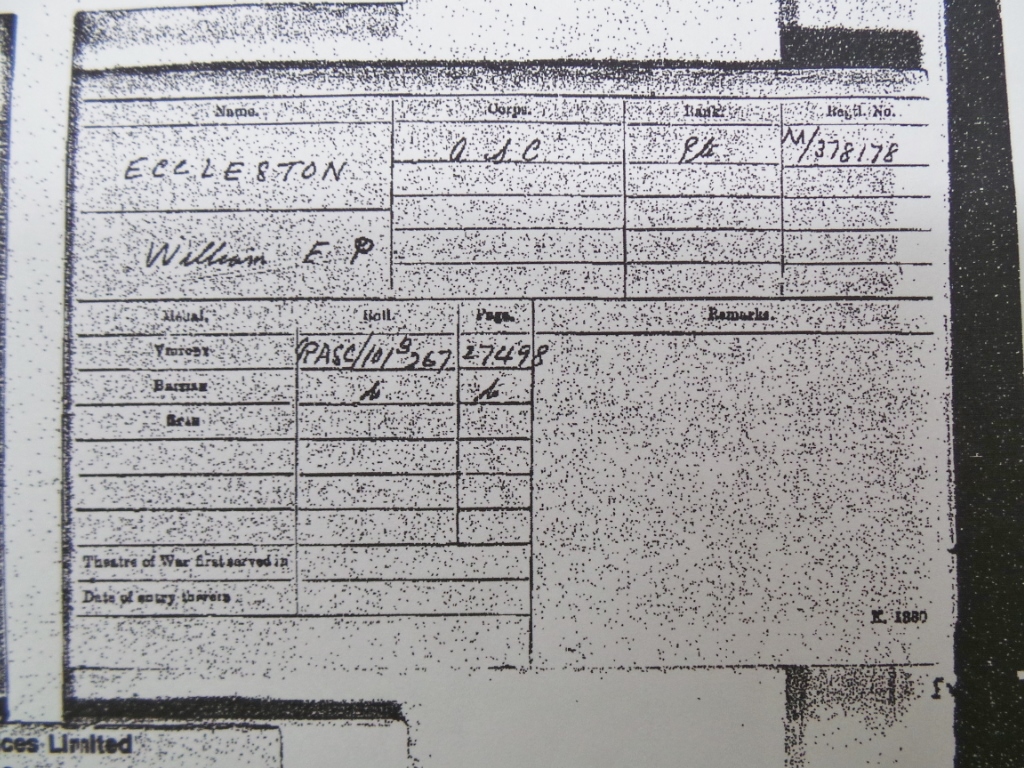 Name. Corps. Rank. Regtl. No.
ECCLESTON A S C Pte M/378178
William E P
Medal. Roll. Page. Remarks.
VICTORY RASC/101 B 267 27498
BRITISH do do
STAR
Theatre of War first served in
Date of entry therein
K. 1380
ces Limited